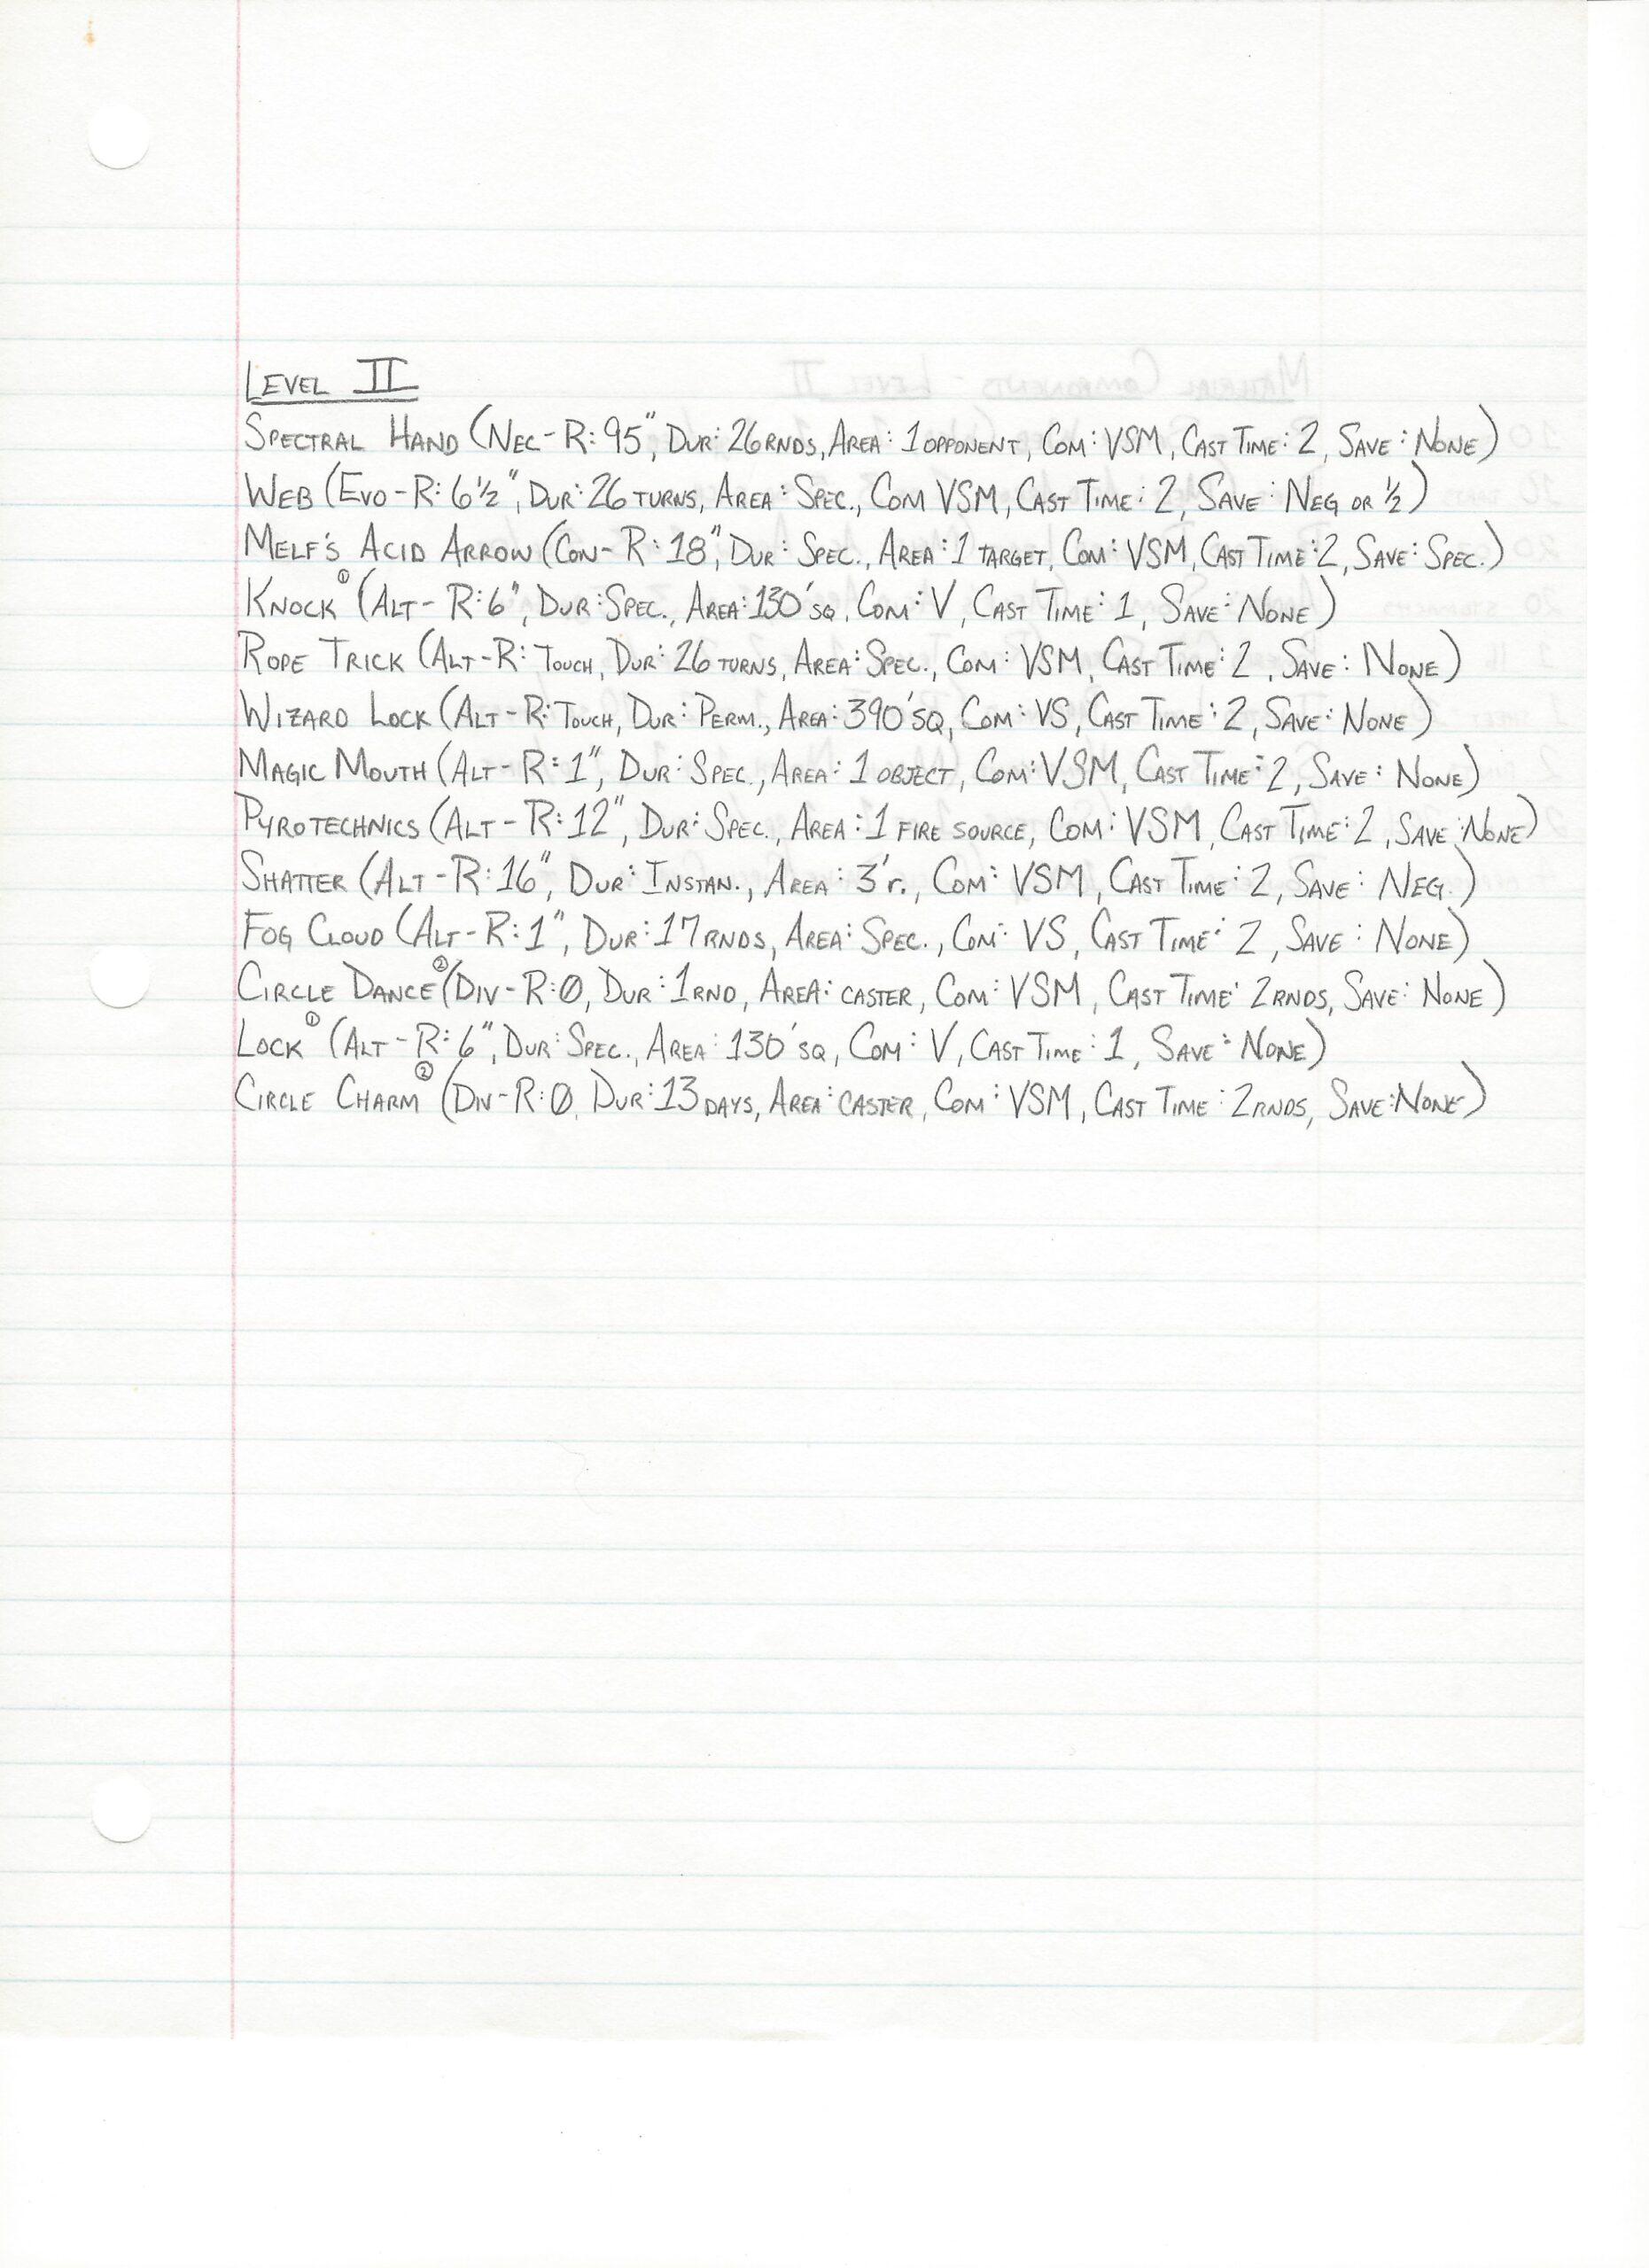 Level II
Spectral Hand (Nec-R: 95", Dur: 26 rnds, Area: 1 opponent, Com: VSM, Cast Time: 2, Save: None)
Web (Evo-R: 6½", Dur: 26 turns, Area: Spec., Com VSM, Cast Time: 2, Save: Neg or ½)
Melf's Acid Arrow (Con-R: 18", Dur: Spec., Area: 1 target, Com: VSM, Cast Time: 2, Save: Spec.)
Knock① (Alt-R: 6", Dur: Spec., Area: 130' sq, Com: V, Cast Time: 1, Save: None)
Rope Trick (Alt-R: Touch, Dur: 26 turns, Area: Spec., Com: VSM, Cast Time: 2, Save: None)
Wizard Lock (Alt-R: Touch, Dur: Perm., Area: 390' sq, Com: VS, Cast Time: 2, Save: None)
Magic Mouth (Alt-R: 1", Dur: Spec., Area: 1 object, Com: VSM, Cast Time: 2, Save: None)
Pyrotechnics (Alt-R: 12", Dur: Spec., Area: 1 fire source, Com: VSM, Cast Time: 2, Save: None)
Shatter (Alt-R: 16", Dur: Instan., Area: 3' r., Com: VSM, Cast Time: 2, Save: Neg.)
Fog Cloud (Alt-R: 1", Dur: 17 rnds, Area: Spec., Com: VS, Cast Time: 2, Save: None)
Circle Dance② (Div-R: 0, Dur: 1 rnd, Area: caster, Com: VSM, Cast Time: 2 rnds, Save: None)
Lock① (Alt-R: 6", Dur: Spec., Area: 130' sq, Com: V, Cast Time: 1, Save: None)
Circle Charm② (Div-R: 0, Dur: 13 days, Area: caster, Com: VSM, Cast Time: 2 rnds, Save: None)